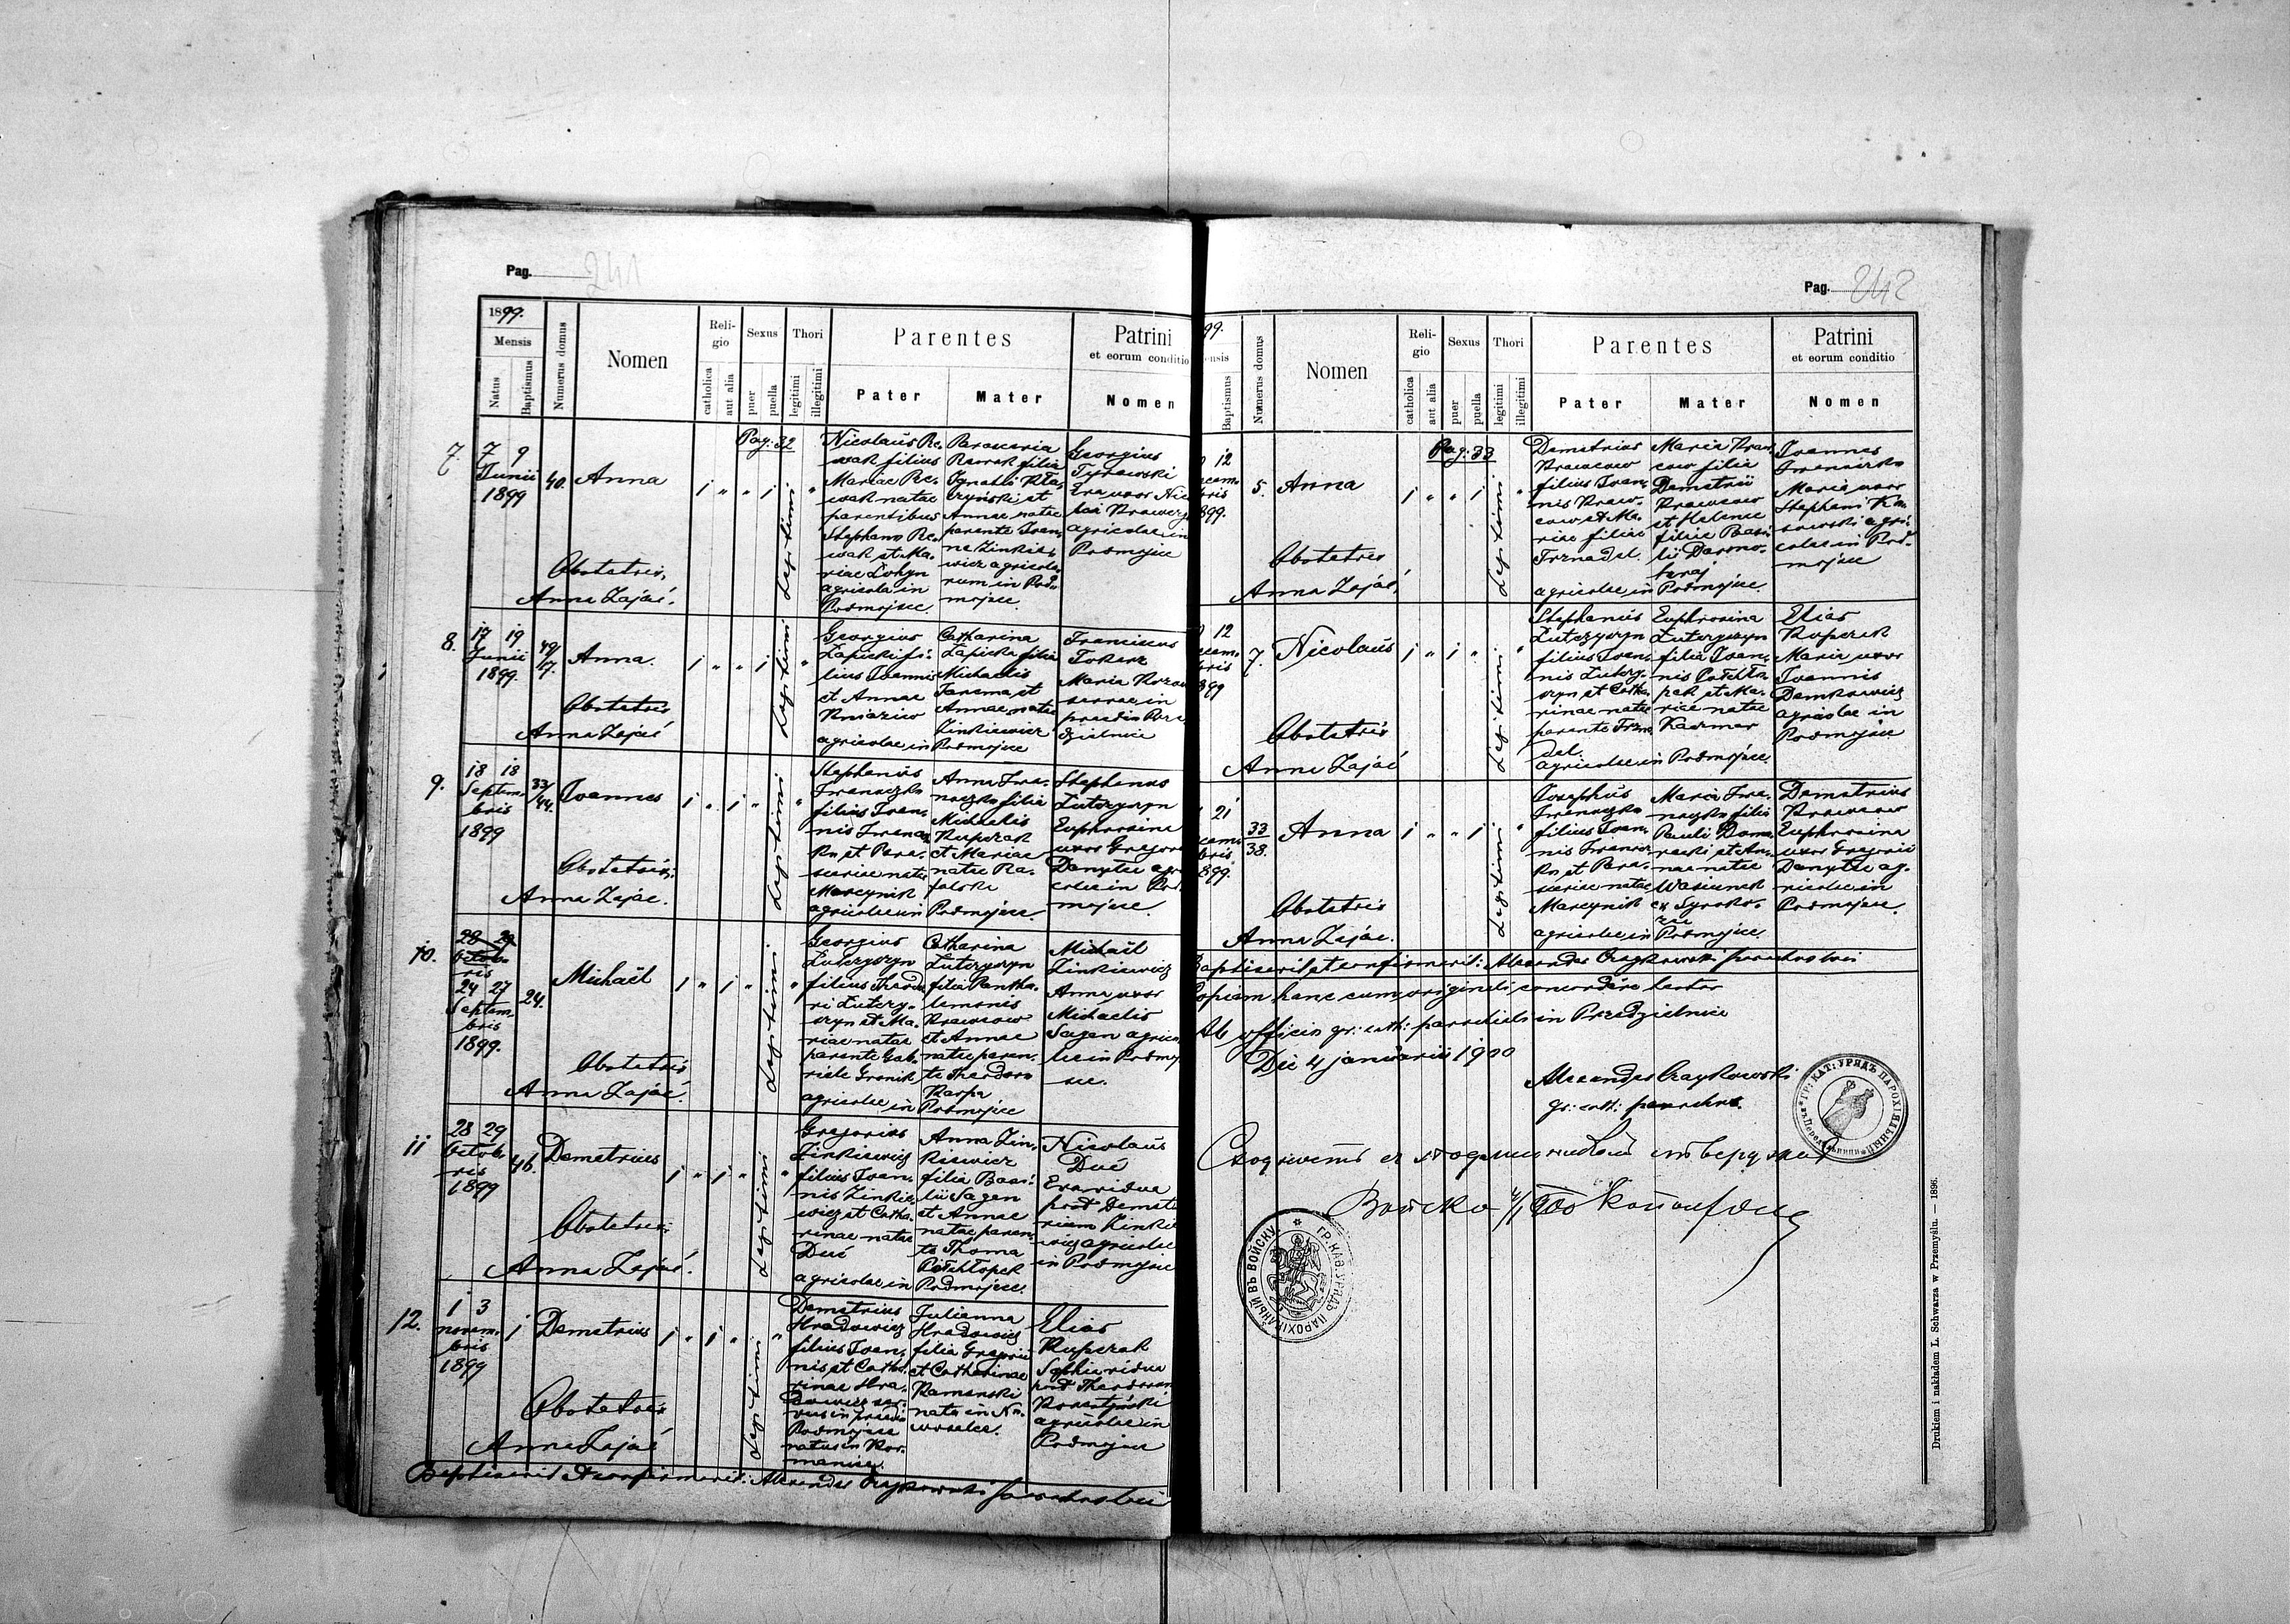 Pag. 241
1899.
Mensis
Natus
Baptismus
Numerus domus
Nomen
Religio
catholica
aut alia
Sexus
puer
puella
Thori
legitimi
illegitimi
Parentes
Pater
Mater
Patrini
et eorum conditio
Nomen
Pag: 32
7.
7 9
Junii
1899
40.
Anna
Obstetrix
Anna Zając.
Legitimi
Nicolaus Re-
wak filius
Mariae Re-
wak natae
parentibus
Stephano Re-
wak et Ma-
riae
agricola in
Podmojsce.
Parascevia
Rewak filia
Ignatii
et
Annae natae
parente Joan-
ne Zinkie-
wicz agricola-
rum in Pod-
mojsce.
Georgius
Tyrawski
Eva uxor Nico-
lai
agricolae in
Podmojsce
8.
17 19
Junii
1899.
49/17.
Anna.
Obstetrix
Anna Zając
Legitimi
Georgius
Łapicki fi-
lius Joannis
et Annae
Kniaziew
agricolae in
Catharina
Łapicka filia
Michaelis
Jarema et
Annae natae
Zinkiewicz
Podmojsce
Franciscus
Tokarz
Maria
servae in
praedio Prze-
dzielnica
9.
18 18
Septem-
bris
1899
33/44.
Joannes
Obstetrix
Anna Zając.
Legitimi
Stephanus
Iwanaszko
filius Joan-
nis Iwanasz-
ko et Para-
sceviae natae
Marcynik
agricolae in
Anna Iwa-
naszko filia
Michaelis
Kupczak
et Mariae
natae Ra-
falska
Podmojsce.
Stephanus
Łuterczyn
Euphrosina
uxor Gregorii
Danyłło agri-
colae in Pod-
mojsce.
10.
28 29
Octob-
ris
24 27
Septem-
bris
1899.
24.
Michaël
Obstetrix
Anna Zając.
Legitimi
Georgius
filius Theodo-
ri
et Ma-
riae natae
parente Gab-
riele Gronik
agricolae in
Catharina
filia Pantha-
lemonis
et Annae
natae paren-
te Theodoro
Karpa
Podmojsce
Michaël
Zinkiewicz
Anna uxor
Michaelis
Sagan agrico-
lae in Podmoj-
sce.
11
28 29
Octob-
ris
1899
46.
Demetrius
Obstetrix
Anna Zając.
Legitimi
Gregorius
Zinkiewicz
filius Joan-
nis Zinkie-
wicz et Catha-
rinae natae
Duć
agricolae in
Anna Zin-
kiewicz
filia Basi-
lii Sagan
et Annae
natae paren-
te Thoma
Podmojsce.
Nicolaus
Duć
Eva vidua
post Demet-
rium Zinkie-
wicz agricolae
in Podmojsce
12.
1 3
novem-
bris
1899
1
Demetrius
Obstetrix
Anna Zając
Legitimi
Demetrius
Hradowicz
filius Joan-
nis et Catha-
rinae Hra-
dowicz ser-
vus in praedio
Podmojsce
natus in Kor-
manice.
Julianna
Hradowicz
filia Gregorii
et Catharinae
Kamenski
nata in
Elias
Kupczak
Sophia vidua
post Theodorum
agricolae in
Podmojsce
Baptisavit et confirmavit: Alexander Czajkowski parochus loci
Pag. 242
99.
Baptismus
Numerus domus
Nomen
Religio
catholica
aut alia
Sexus
puer
puella
Thori
legitimi
illegitimi
Parentes
Pater
Mater
Patrini
et eorum conditio
Nomen
Pag: 33
12
bris
899.
5.
Anna
Obstetrix
Anna Zając.
Legitimi
Demetrius
filius Joan-
nis
et Ma-
riae filiae
Trznadel.
agricolae in
Maria
filia
Demetrii
et Helenae
filiae Basi-
lii
Podmojsce.
Joannes
Iwanaszko
Maria uxor
Stephani
agri-
colae in Pod-
mojsce
12
bris
899
7.
Nicolaus
Obstetrix
Anna Zając
Legitimi
Stephanus
Łuterczyn
filius Joan-
nis
et Catha-
rinae natae
parente Trzna-
del.
agricolae in
Euphrosina
Łuterczyn
filia Joan-
nis
et Ma-
riae natae
Kaczmar
Podmojsce.
Elias
Kupczak
Maria uxor
Joannis
Demkowicz
agricolae in
Podmojsce
21
bris
899.
33
38.
Anna
Obstetrix
Anna Zając.
Legitimi
Josephus
Iwanaszko
filius Joan-
nis Iwanasz-
ko et Para-
sceviae natae
Marcynik
agricolae in
Maria Iwa-
naszko filia
Pauli
et An-
nae natae
Wasiunek
Podmojsce.
Demetrius
Euphrosina
uxor Gregorii
Danyłło ag-
ricolae in
Podmojsce.
Baptisavit et confirmavit: Alexander Czajkowski parochus loci
Copiam hanc cum originali concordare testor
Ab officio gr: cath: parochiali in Przedzielnica
Die 4 januarii 1900
Alexander Czajkowski
gr: cath: parochus.
ГР: КАТ: УРЯДЪ ПАРОХІЯЛЬНЫЙ
ГР. КАѲ. УРЯДЪ ПАРОХІАЛЬНЫЙ ВЪ ВОЙСКУ.
Drukiem i nakładem L. Schwarza w Przemyślu. — 1896.